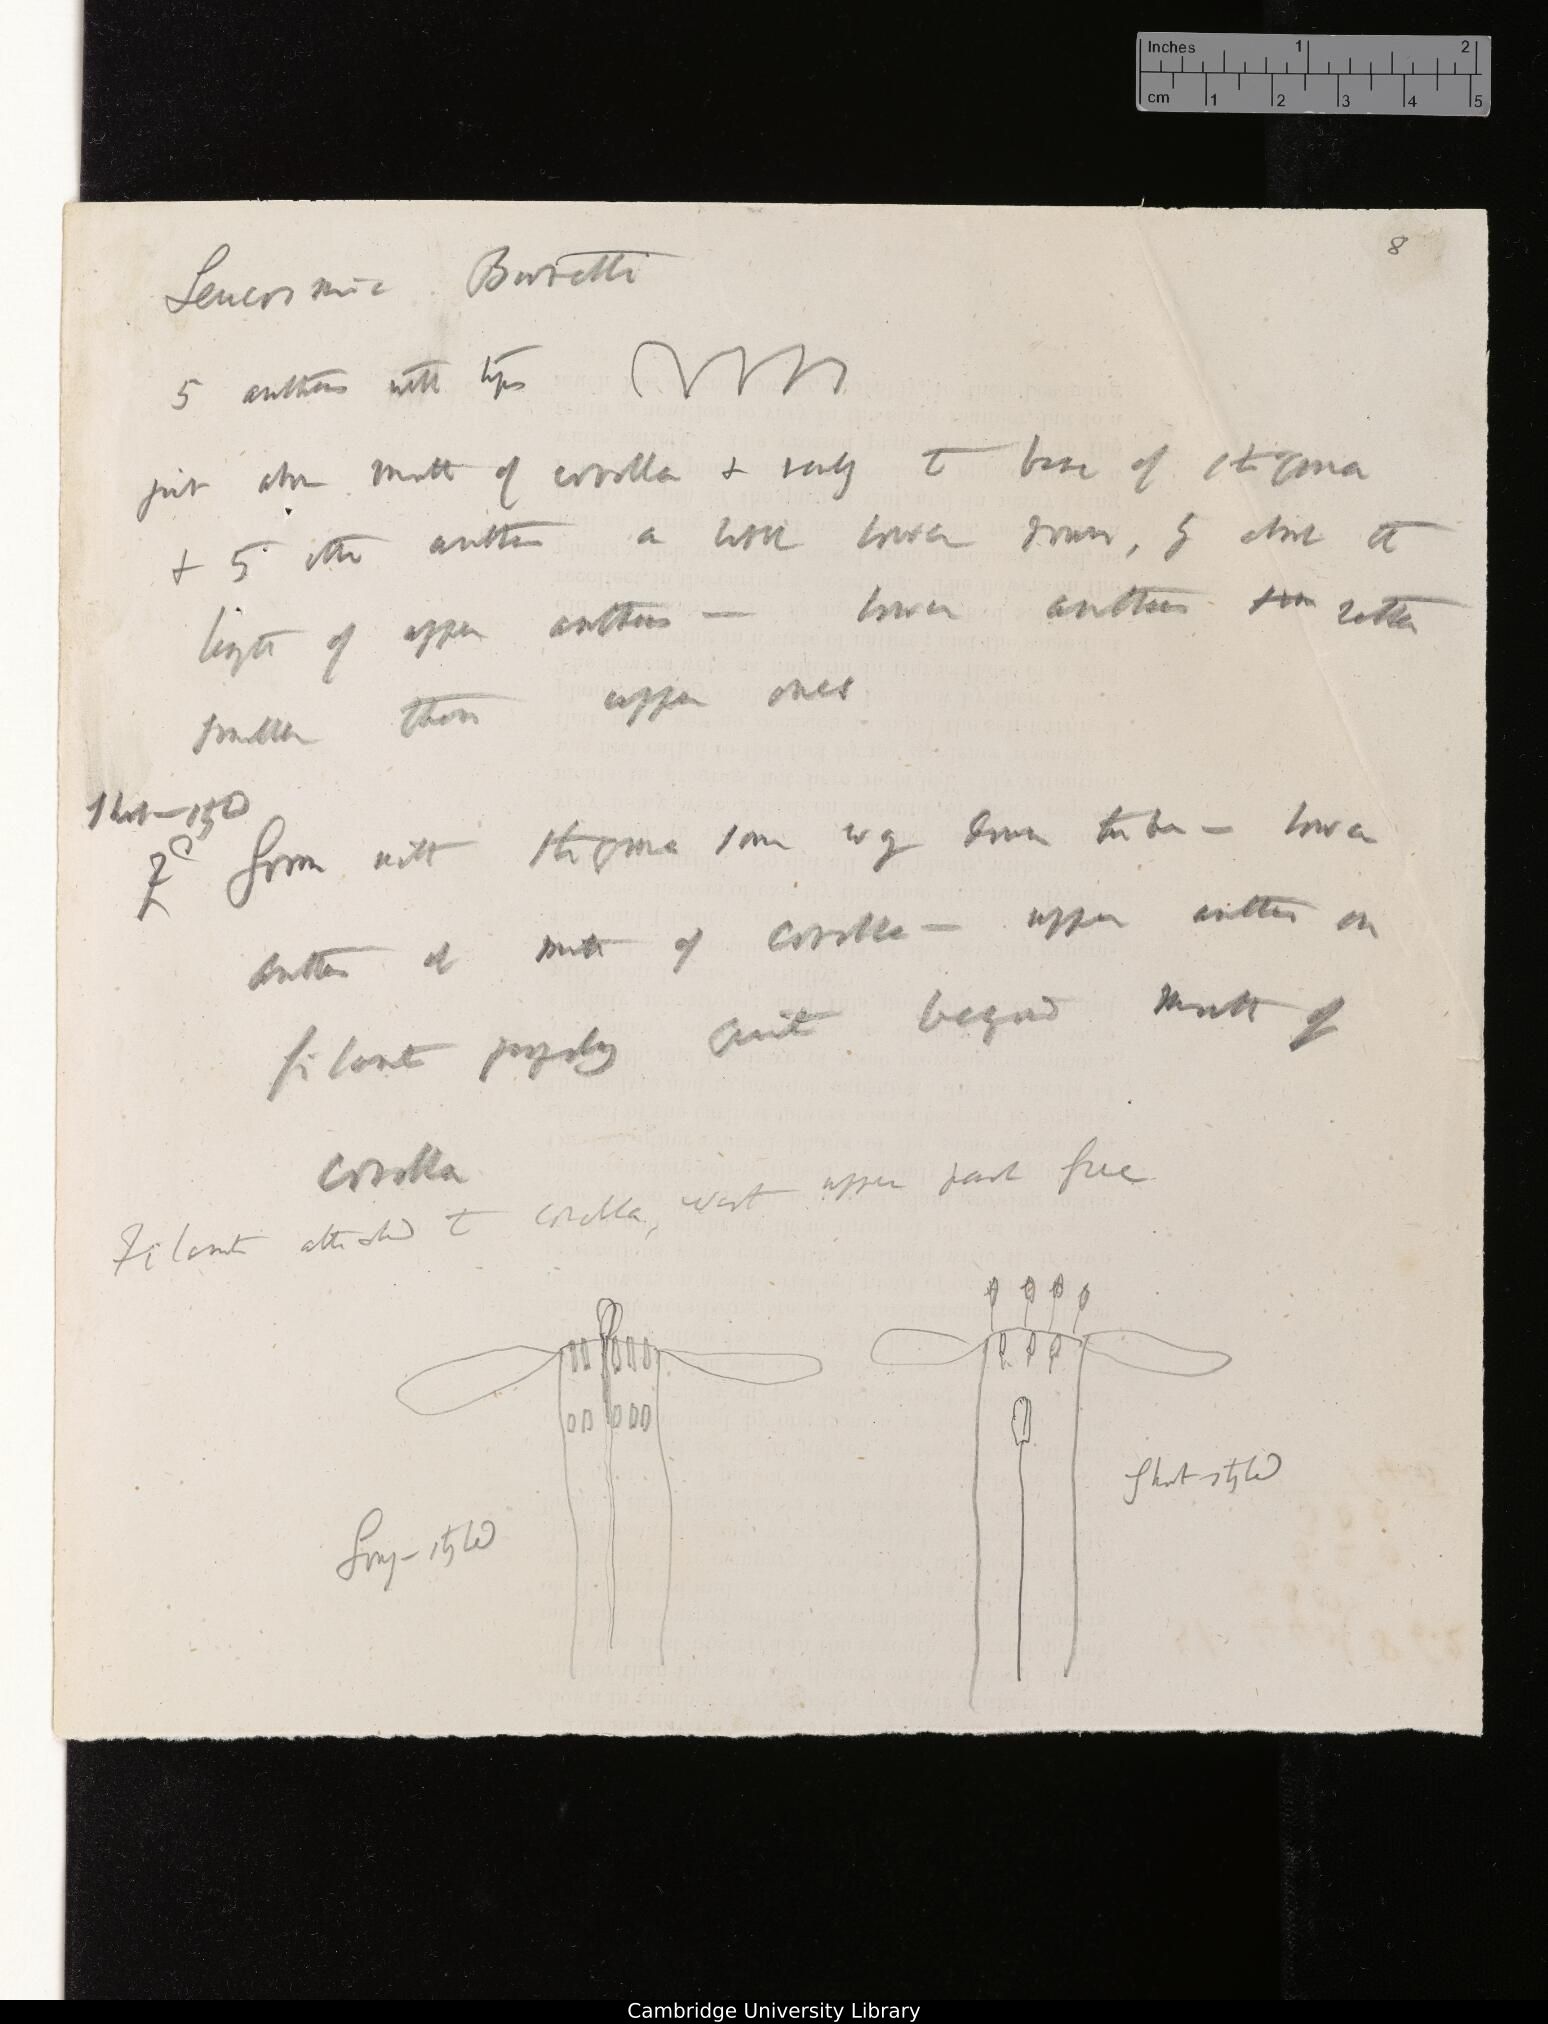 Inches 1 2
cm 1 2 3 4 5
8
Leucosmia Burnetti
5 anthers with tips
just above mouth of corolla & reaching to base of stigma
& 5 other anthers a little lower down, by about the
length of upper anthers — lower anthers rather
smaller than upper ones
Short-styled
form with stigma some way down tube — lower
anthers at mouth of corolla — upper anthers on
filament quite beyond mouth of
corolla
Filament attached to corolla, upper part free
Long-styled
Short-styled
Cambridge University Library